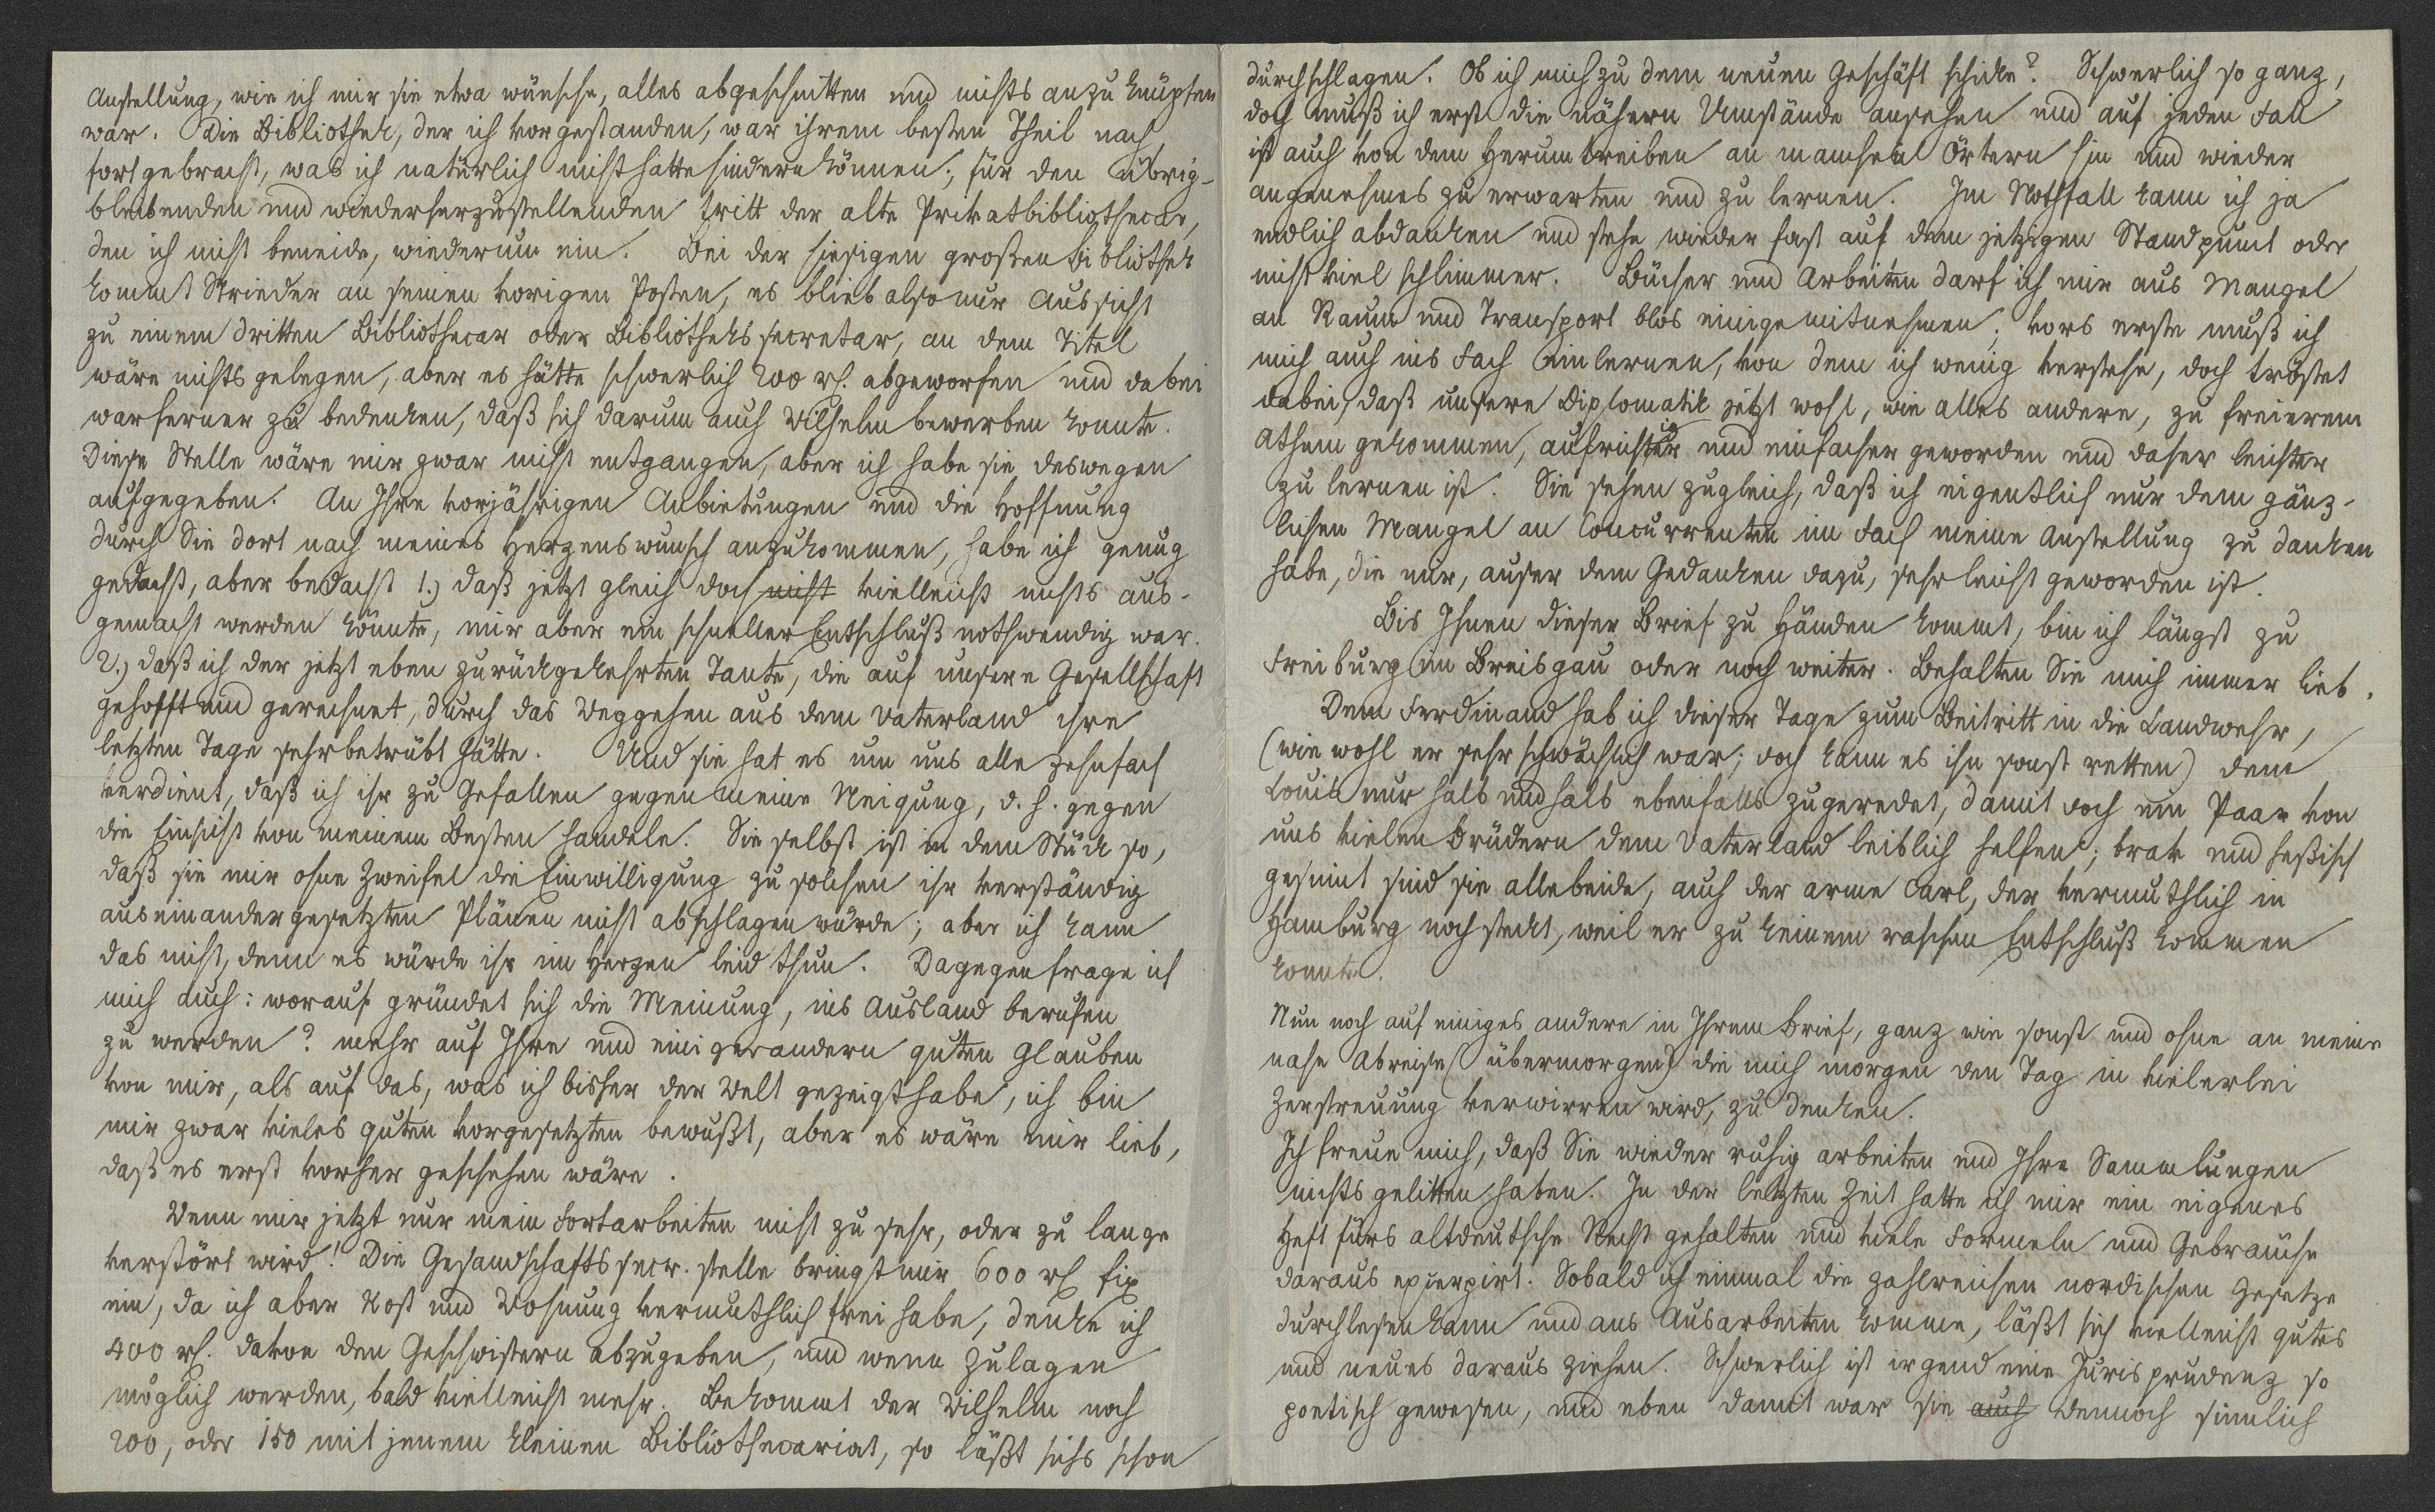 Anstellung, wie ich mir sie etwa wünsche, alles abgeschnitten und nichts anzuknüpfen
war. Die Bibliothek, der ich vorgestanden, war ihrem besten Theil nach
fortgebracht, was ich natürlich nicht hatte hindern können; für den übrig-
bleibenden und wiederherzustellenden tritt der alte Privatbibliothecar,
den ich nicht beneide, wiederum ein. Bei der hiesigen großen Bibliothek
kommt Strieder an seinen vorigen Posten, es blieb also nur Aussicht
zu einem dritten Bibliothecar oder Bibliothekssecretar, an dem Titel
wäre nichts gelegen, aber es hätte schwerlich 200 rh. abgeworfen und dabei
war ferner zu bedenken, daß sich darum auch Wilhelm bewerben konnte.
Diese Stelle wäre mir zwar nicht entgangen, aber ich habe sie deswegen
aufgegeben. An Ihre vorjährigen Anbietungen und die Hoffnung
durch Sie dort nach meines Herzenswunsch anzukommen, habe ich genug
gedacht, aber bedacht 1.) daß jetzt gleich doch nicht vielleicht nichts aus-
gemacht werden könnte, mir aber ein schneller Entschluß nothwendig war.
2.) daß ich der jetzt eben zurückgekehrten Tante, die auf unsere Gesellschaft
gehofft und gerechnet, durch das Weggehen aus dem Vaterland ihre
letzten Tage sehr betrübt hätte. Und sie hat es um uns alle zehnfach
verdient, daß ich ihr zu Gefallen gegen meine Neigung, d. h. gegen
die Einsicht von meinem Besten handele. Sie selbst ist in dem Stück so,
daß sie mir ohne Zweifel die Einwilligung zu solchen ihr verständig
auseinandergesetzten Plänen nicht abschlagen würde; aber ich kann
das nicht, denn es würde ihr im Herzen leid thun. Dagegen frage ich
mich auch: worauf gründet sich die Meinung, ins Ausland berufen
zu werden? mehr auf Ihre und einiger andern guten Glauben
von mir, als auf das, was ich bisher der Welt gezeigt habe, ich bin
mir zwar vieles guten vorgesetzten bewußt, aber es wäre mir lieb,
daß es erst vorher geschehen wäre.
Wenn mir jetzt nur mein Fortarbeiten nicht zu sehr, oder zu lange
verstört wird! Die Gesandschaftssecr. stelle bringt mir 600 rh fix
ein, da ich aber Kost und Wohnung vermuthlich frei habe, denke ich
400 rh. davon den Geschwistern abzugeben, und wenn Zulagen
möglich werden, bald vielleicht mehr. Bekommt der Wilhelm noch
200, oder 150 mit jenem kleinen Bibliothecariat, so läßt sichs schon
durchschlagen. Ob ich mich zu dem neuen Geschäft schicke? Schwerlich so ganz,
doch muß ich erst die nähern Umstände ansehen und auf jeden Fall
ist auch von dem Herumtreiben an manchen Örtern hin und wieder
angenehmes zu erwarten und zu lernen. Im Nothfall kann ich ja
endlich abdanken und stehe wieder fast auf dem jetzigen Standpunct oder
nicht viel schlimmer. Bücher und Arbeiten darf ich mir aus Mangel
an Raum und Transport blos einige mitnehmen; vors erste muß ich
mich auch ins Fach einlernen, von dem ich wenig verstehe, doch tröstet
dabei, daß unsere Diplomatik jetzt wohl, wie alles andere, zu freierem
Athem gekommen, aufrichtig und einfacher geworden und daher leichter
zu lernen ist. Sie sehen zugleich, daß ich eigentlich nur dem gänz-
lichen Mangel an Concurrenten im Fach meine Anstellung zu danken
habe, die mir, auser dem Gedanken dazu, sehr leicht geworden ist.
Bis Ihnen dieser Brief zu Händen kommt, bin ich längst zu
Freiburg im Breisgau oder noch weiter. Behalten Sie mich immer lieb.
Dem Ferdinand hab ich dieser Tage zum Beitritt in die Landwehr,
(wie wohl er sehr schwächlich war; doch kann es ihn sonst retten) dem
Louis nur halb und halb ebenfalls zugeredet, damit doch ein Paar von
uns vielen Brüdern dem Vaterland leiblich helfen; brav und heßisch
gesinnt sind sie alle beide, auch der arme Carl, der vermuthlich in
Hamburg noch steckt, weil er zu keinem raschen Entschluß kommen
konnte.
Nun noch auf einiges andere in Ihrem Brief, ganz wie sonst und ohne an meine
nahe Abreise (übermorgen) die mich morgen den Tag in vielerlei
Zerstreuung verwirren wird, zu denken.
Ich freue mich, daß Sie wieder ruhig arbeiten und Ihre Sammlungen
nichts gelitten haben. In der letzten Zeit hatte ich mir ein eigenes
Heft fürs altdeutsche Recht gehalten und viele Formeln und Gebräuche
daraus excerpirt. Sobald ich einmal die zahlreichen nordischen Gesetze
durchlesen kann und ans Ausarbeiten komme, läßt sich vielleicht gutes
und neues daraus ziehen. Schwerlich ist irgend eine Jurisprudenz so
poetisch gewesen, und eben damit war sie auch dennoch sinnlich